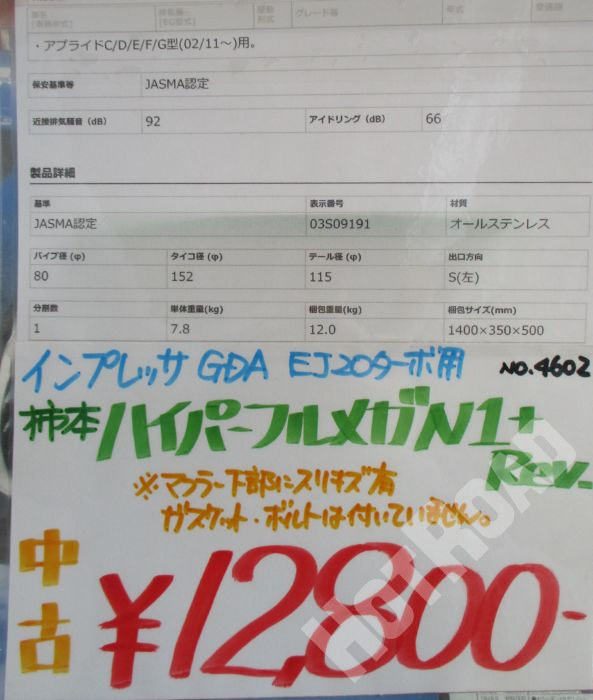 グレード等
・アプライドC/D/E/F/G型(02/11～)用。
保安基準等 JASMA認定
近接排気騒音（dB） 92 アイドリング（dB） 66
製品詳細
基準 表示番号 材質
JASMA認定 03S09191 オールステンレス
パイプ径 (φ) タイコ径 (φ) テール径 (φ) 出口方向
80 152 115 S(左)
分割数 単体重量(kg) 梱包重量(kg) 梱包サイズ(mm)
1 7.8 12.0 1400×350×500
インプレッサ GDA EJ20ターボ用 NO.4602
柿本ハイパーフルメガN1+
Rev.
※マフラー下部にスリキズ有
ガスケット・ボルトは付いていません。
中古
¥12,800-
HOT ROAD